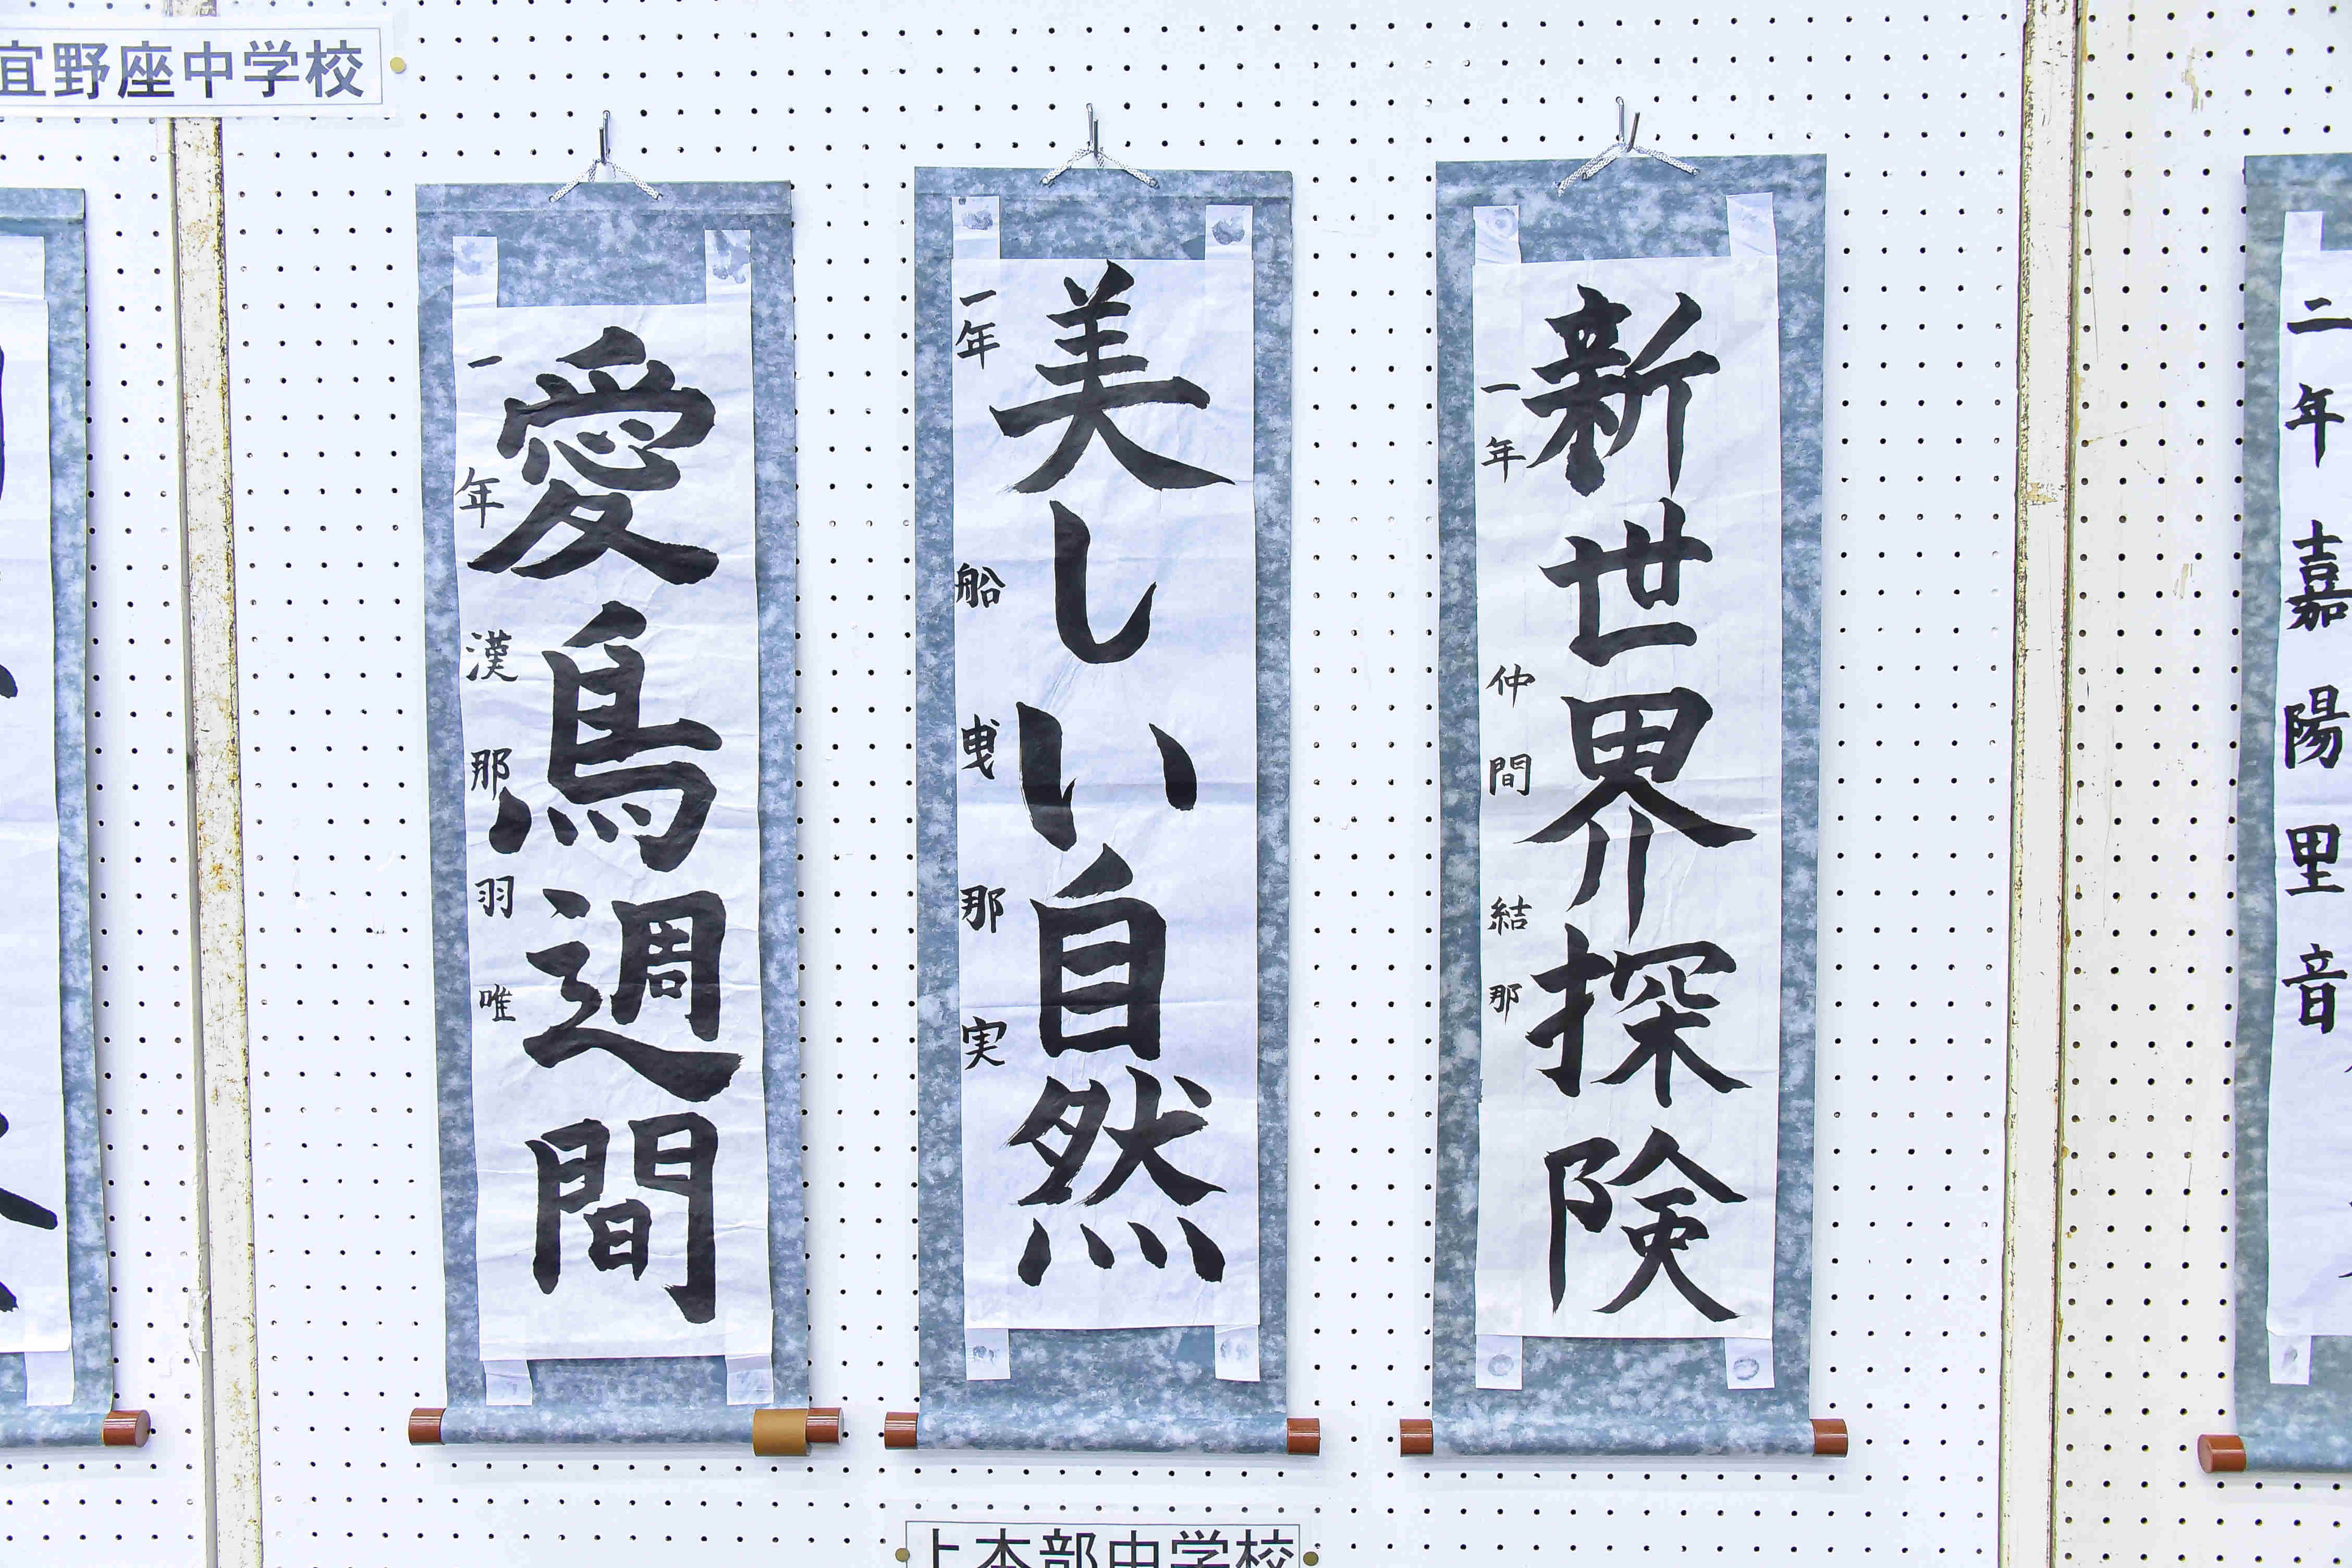 宜野座中学校
愛鳥週間
一年 漢那羽唯
美しい自然
一年 船曳那実
新世界探険
一年 仲間結那
二年 嘉陽里音
上本部中学校